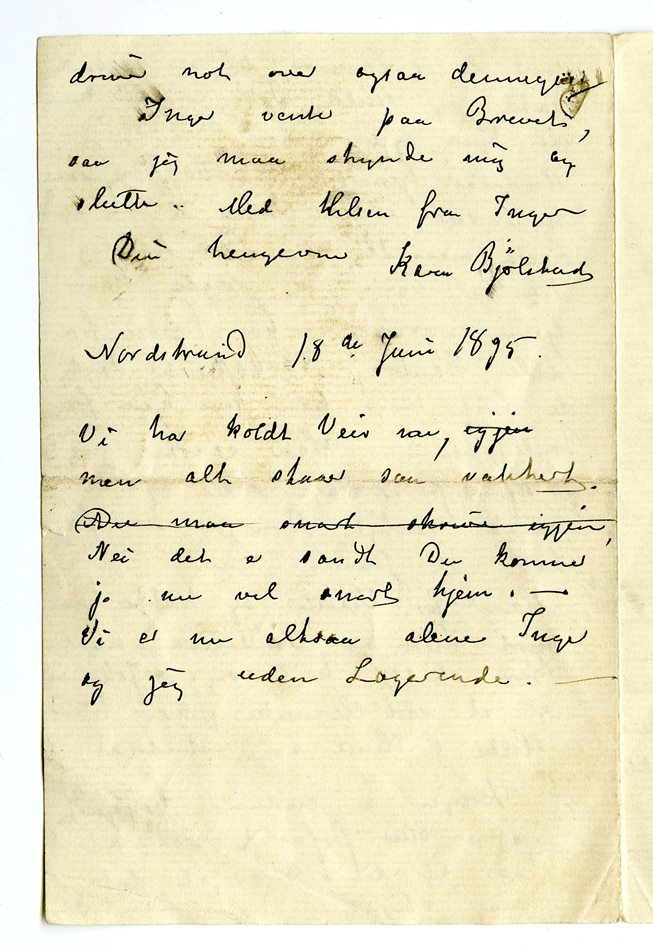 driver not over ogsaa dennegang
Inger vente paa Brevet,
saa jeg maa skynde mig og
slutte.. Med Hilsen fra Inger
Din hengevne Karen Bjølstad
Nordstrand 18de Juni 1895.
Vi har koldt Veir nu, igjen
men alt staar saa vakkert.
Du maa snart skrive igjen,
Nei det e sandt Du kommer
jo nu vel snart hjem. —
Vi er nu altsaa alene Inger
og jeg uden Logerende. —